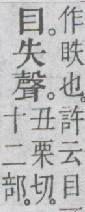 作眣也。許云目
目。失聲。丑栗切。
十二部。